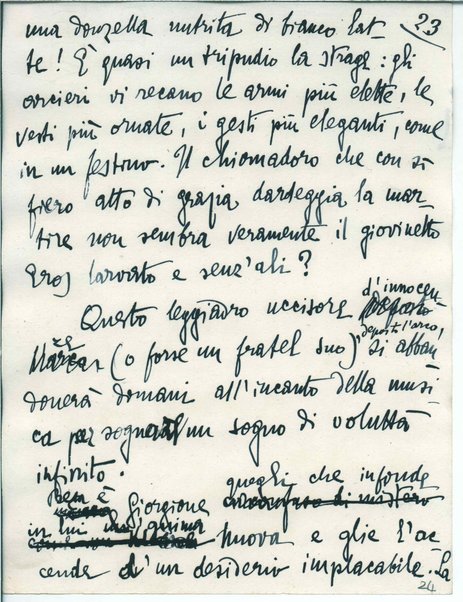 23
una donzella nutrita di bianco lat-
te! È quasi un tripudio la strage: gli
arcieri vi recano le armi più elette, le
vesti più ornate, i gesti più eleganti, come
in un festino. Il chiomadoro che con sì
fiero atto di grazia dardeggia la mar-
tire non sembra veramente il giovinetto
Eros larvato e senz'ali?
d'innocen-
Questo leggiadro uccisore
deposto l'arco,
ze (o forse un fratel suo), si abban
donerà domani all'incanto della musi
ca per sognare un sogno di voluttà
infinito.
Ben è Giorgione quegli che infonde
in lui un'anima
nuova e glie l'ac
cende d'un desiderio implacabile. La
24